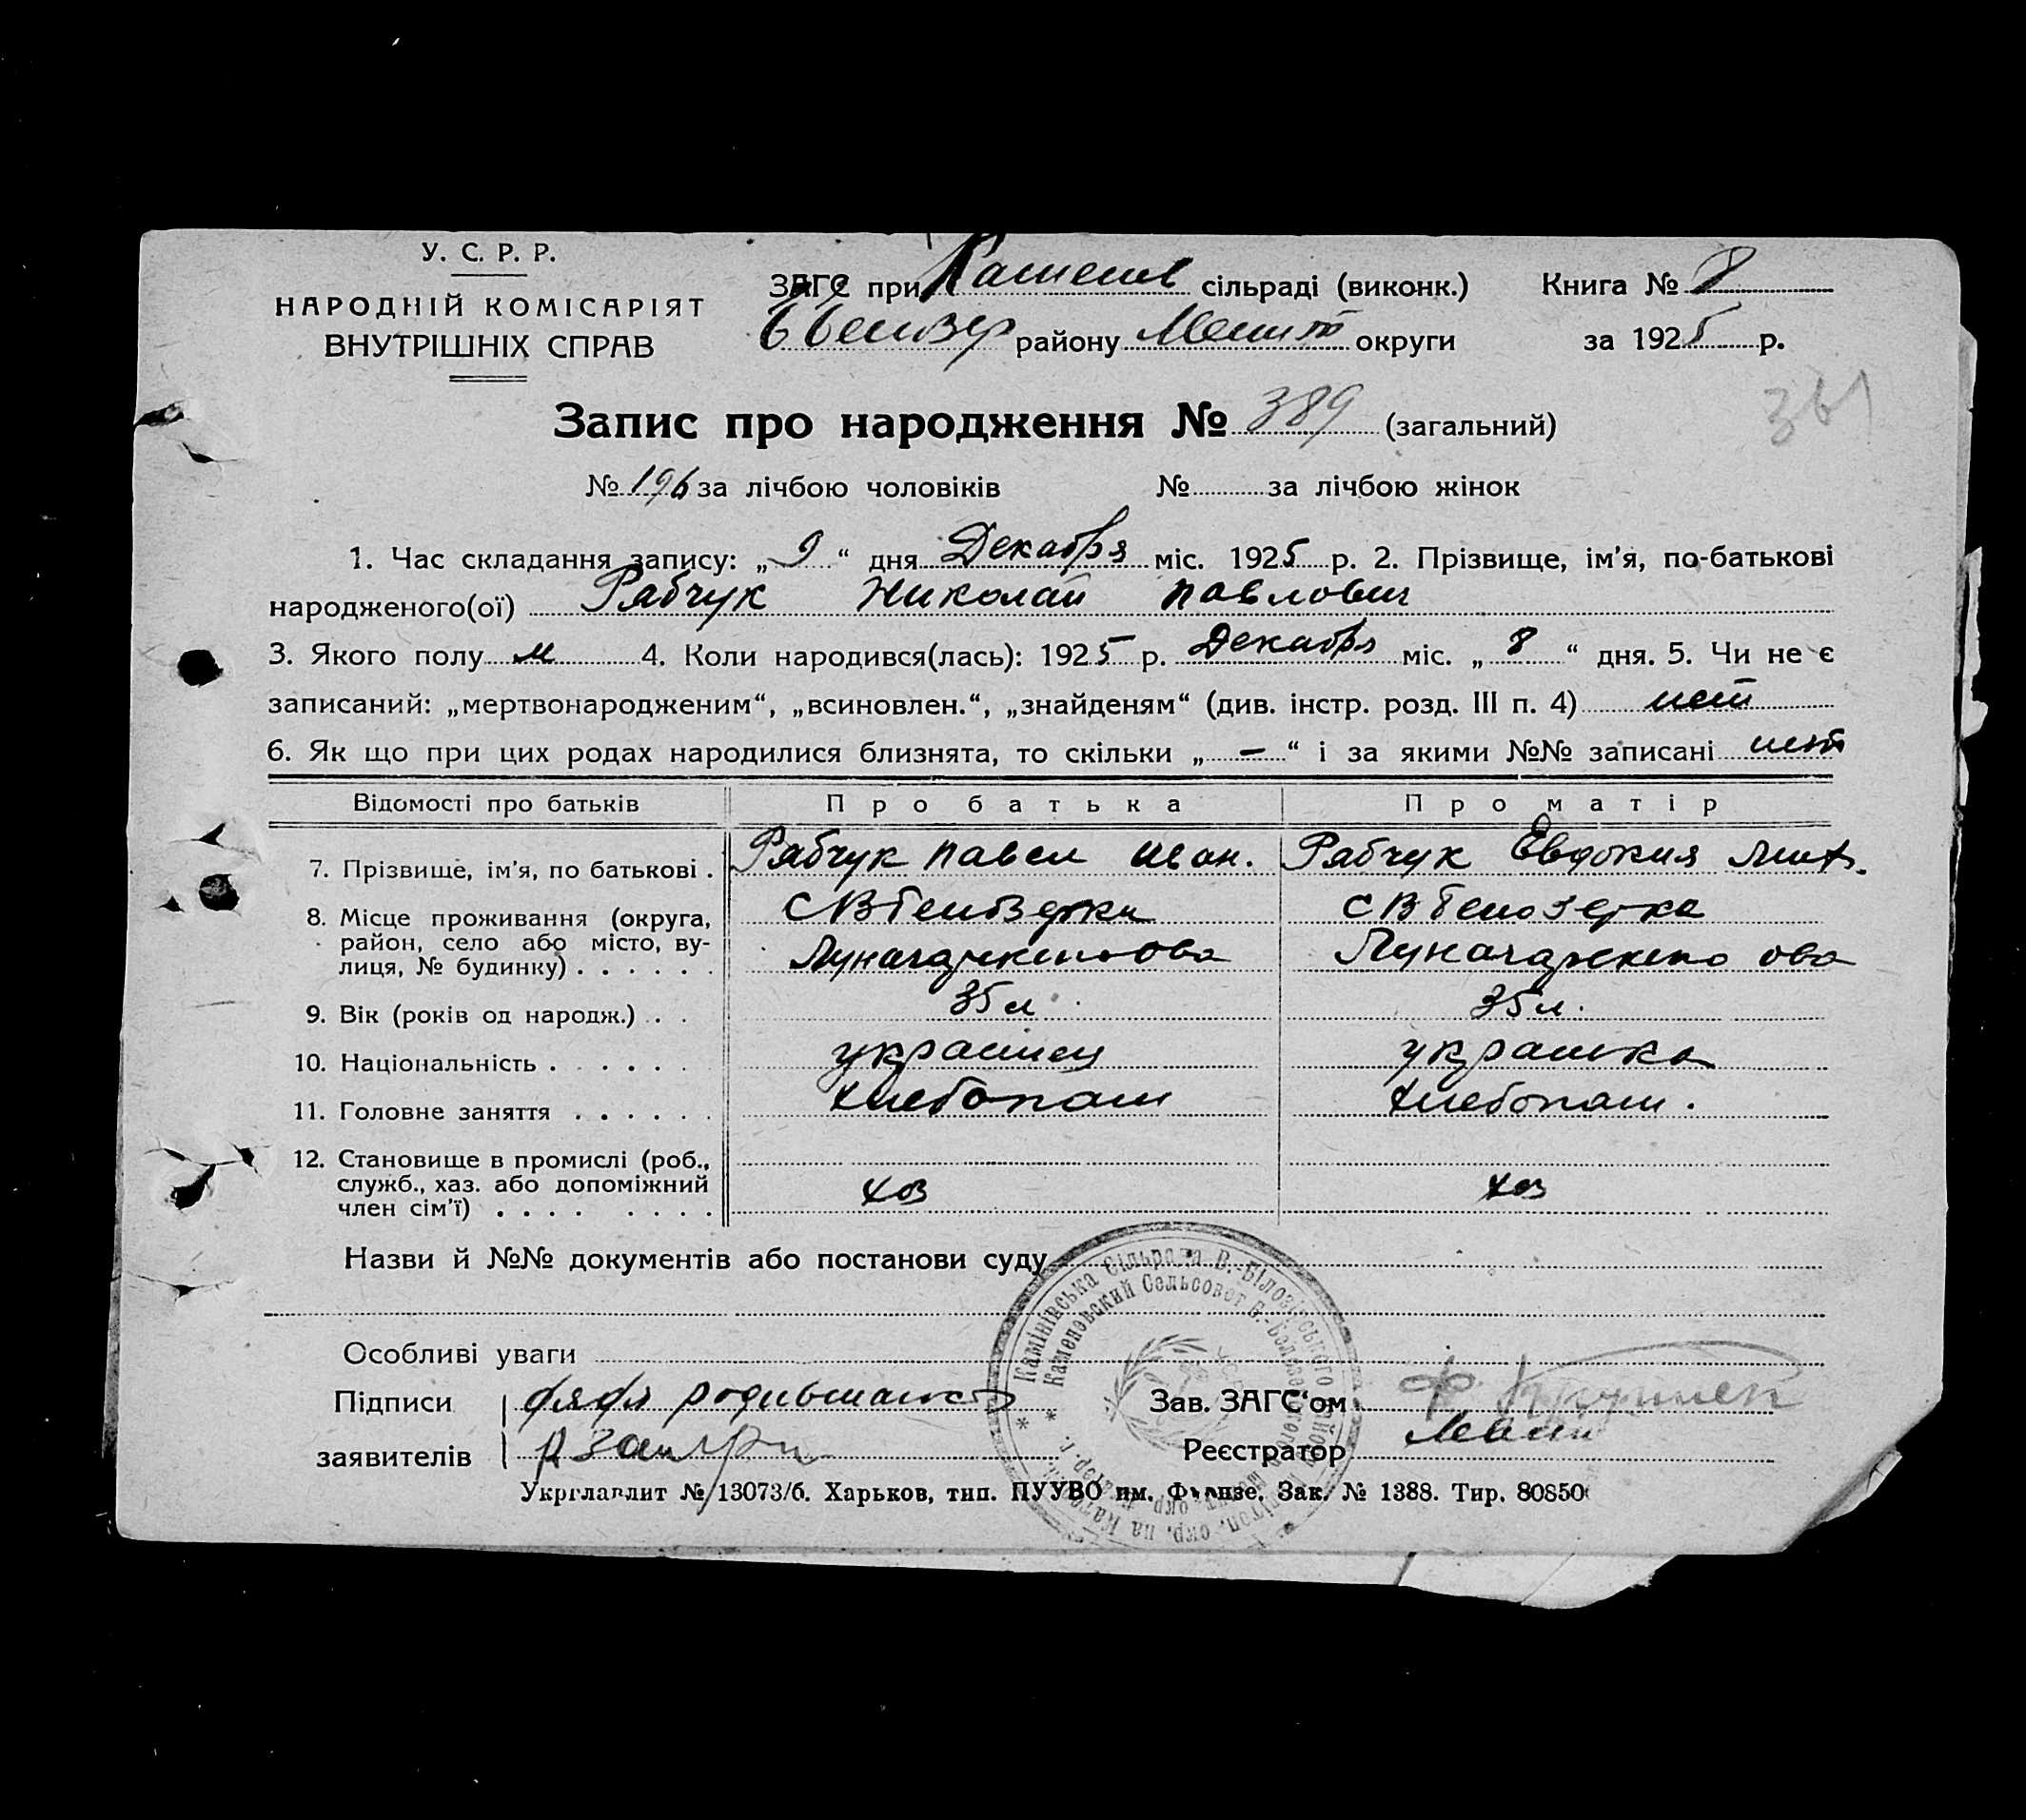 У. С. Р. Р.
НАРОДНІЙ КОМІСАРІЯТ
ВНУТРІШНІХ СПРАВ
ЗАГС при Каменев сільраді (виконк.) Книга № 8
району Мелит округи за 1925 р.
361
Запис про народження № 389 (загальний)
№ 196 за лічбою чоловіків № за лічбою жінок
1. Час складання запису: „ 9 “ дня Декабря міс. 1925 р. 2. Прізвище, ім'я, по-батькові
народженого(ої) Рябчук Николай Павлович
3. Якого полу м 4. Коли народився(лась): 1925 р. Декабря міс. „ 8 “ дня. 5. Чи не є
записаний: „мертвонародженим“, „всиновлен.“, „знайденям“ (див. інстр. розд. III п. 4) нет
6. Як що при цих родах народилися близнята, то скільки „ – “ і за якими №№ записані нет
Відомості про батьків Про батька Про матір
7. Прізвище, ім'я, по батькові . Рябчук Павел Рябчук Евдокия
8. Місце проживання (округа, с В Белозерка с В Белозерка
район, село або місто, ву-
лиця, № будинку) . . . . . .
9. Вік (років од народж.) . . 35 л 35 л.
10. Національність . . . . . . украинец украинка
11. Головне заняття . . . . . . хлебопаш хлебопаш.
12. Становище в промислі (роб.,
служб., хаз. або допоміжний хоз хоз
член сім'ї) . . . . . . . .
Назви й №№ документів або постанови суду
Особливі уваги
Підписи дядя Зав. ЗАГС'ом
заявителів Реєстратор
Камінівська Сільрада В.-Білозірського
Каменовский Сельсовет В.-Белозерского
Укрглавлит № 13073/б. Харьков, тип. ПУУВО им. Фрунзе. Зак. № 1388. Тир. 80850